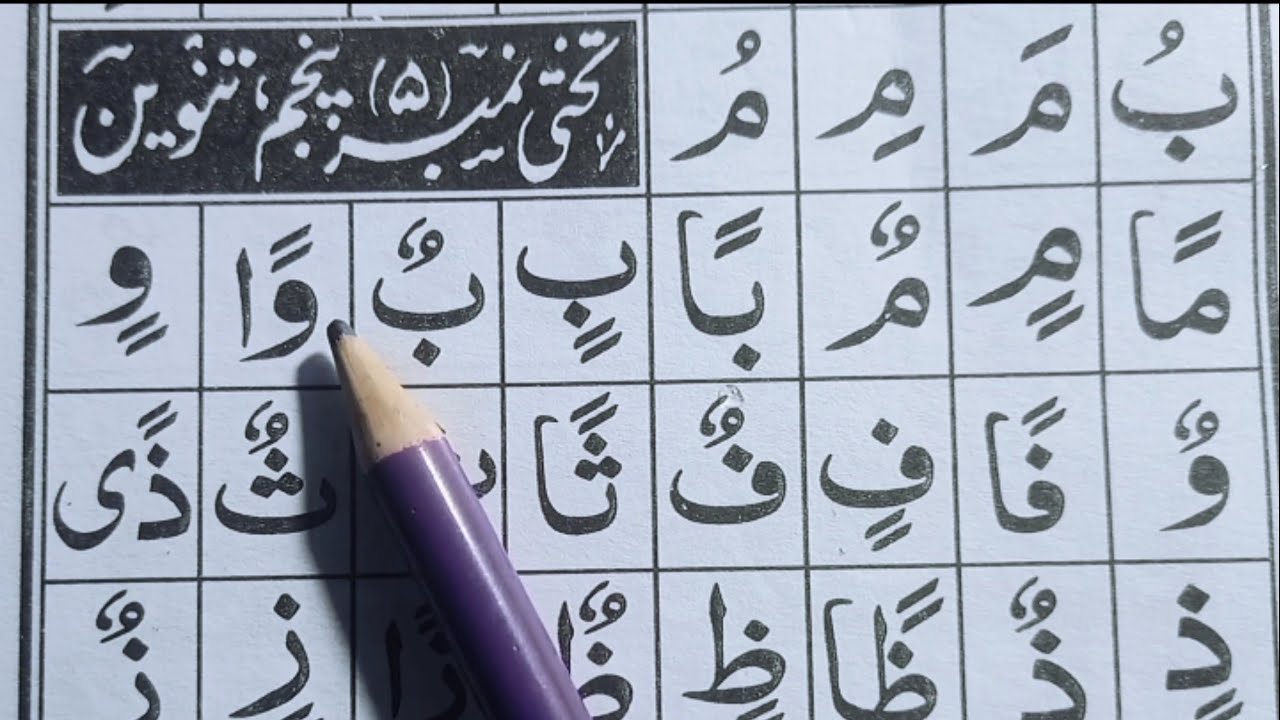 بُ مَ مِ مُ تختی نمبر (۵) پنجم، تنوین
مًا مٍ مٌ بًا بٍ بٌ وًا وٍ
وٌ فًا فٍ فٌ ثًا ثٌ ذًی
ذٍ ذٌ ظًا ظٍ ظٌ زٍ زٌ